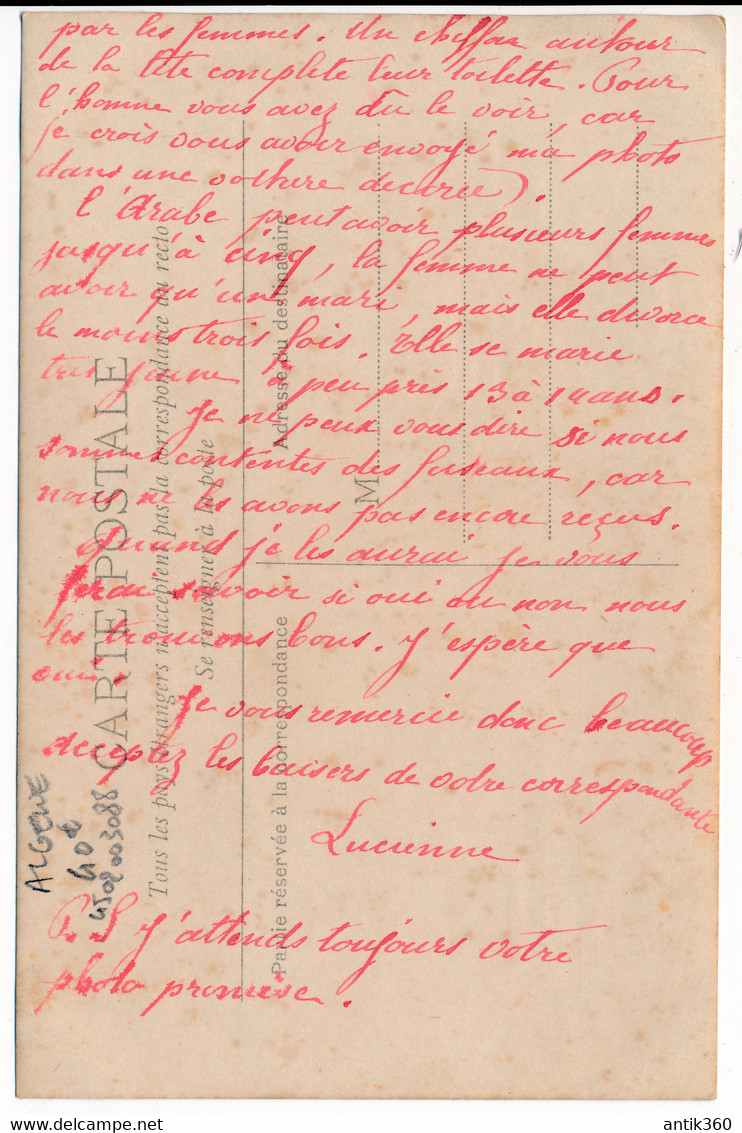 par les femmes. Un chiffon autour
de la tête complète leur toilette. Pour
l'homme vous avez dû le voir, car
je crois vous avoir envoyé ma photo
dans une voiture décorée).
l'Arabe peut avoir plusieurs femmes
jusqu'à cinq, la femme ne peut
avoir qu'un mari, mais elle divorce
le moins trois fois. Elle se marie
très jeune à peu près 13 à 14 ans.
Je ne peux vous dire si nous
sommes contentes des fuseaux, car
nous ne les avons pas encore reçus.
Quand je les aurai je vous
ferai savoir si oui ou non nous
les trouvons bons. J'espère que
oui.
Je vous remercie donc beaucoup
acceptez les baisers de votre correspondante
Lucienne
P.S J'attends toujours votre
photo promise.
CARTE POSTALE
Tous les pays étrangers n'acceptent pas la correspondance au recto
Se renseigner à la poste
Partie réservée à la correspondance
Adresse du destinataire
M
ALGERIE
40€
antik360